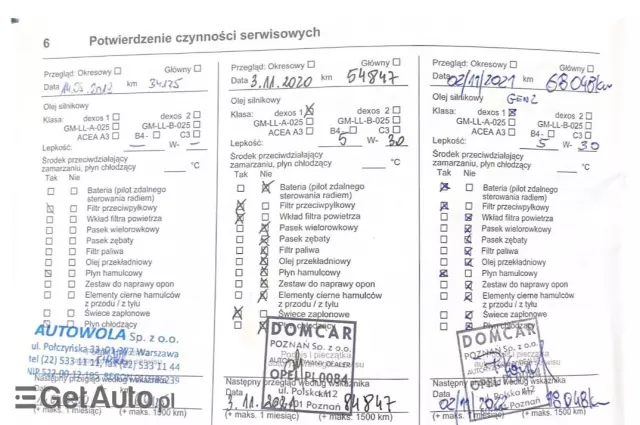 6 Potwierdzenie czynności serwisowych
Przegląd: Okresowy Główny
Data km 34175
Olej silnikowy
Klasa: dexos 1 dexos 2
GM-LL-A-025 GM-LL-B-025
ACEA A3 B4- C3
Lepkość: W-
Środek przeciwdziałający
zamarzaniu, płyn chłodzący °C
Tak Nie
Bateria (pilot zdalnego
sterowania radiem)
Filtr przeciwpyłkowy
Wkład filtra powietrza
Pasek wielorowkowy
Pasek zębaty
Filtr paliwa
Olej przekładniowy
Płyn hamulcowy
Zestaw do naprawy opon
Elementy cierne hamulców
z przodu / z tyłu
Świece zapłonowe
Płyn chłodzący
AUTOWOLA Sp. z o.o.
Warszawa
tel (22) 533 11 11, fax (22) 533 11 44
Następny przegląd według wskaźnika
(+ maks. 1 miesiąc) (+ maks. 1500 km)
Przegląd: Okresowy Główny
Data 3.11.2020 km 54847
Olej silnikowy
Klasa: dexos 1 dexos 2
GM-LL-A-025 GM-LL-B-025
ACEA A3 B4- C3
Lepkość: 5 W- 30
Środek przeciwdziałający
zamarzaniu, płyn chłodzący °C
Tak Nie
Bateria (pilot zdalnego
sterowania radiem)
Filtr przeciwpyłkowy
Wkład filtra powietrza
Pasek wielorowkowy
Pasek zębaty
Filtr paliwa
Olej przekładniowy
Płyn hamulcowy
Zestaw do naprawy opon
Elementy cierne hamulców
z przodu / z tyłu
Świece zapłonowe
Płyn chłodzący
DOMCAR
POZNAŃ Sp. z o.o.
OPEL PL0084
ul. Polska 112
Poznań
Następny przegląd według wskaźnika
84847
(+ maks. 1 miesiąc) (+ maks. 1500 km)
Przegląd: Okresowy Główny
Data 02/11/2021 km 68048km
Olej silnikowy GEN2
Klasa: dexos 1 dexos 2
GM-LL-A-025 GM-LL-B-025
ACEA A3 B4- C3
Lepkość: 5 W- 30
Środek przeciwdziałający
zamarzaniu, płyn chłodzący °C
Tak Nie
Bateria (pilot zdalnego
sterowania radiem)
Filtr przeciwpyłkowy
Wkład filtra powietrza
Pasek wielorowkowy
Pasek zębaty
Filtr paliwa
Olej przekładniowy
Płyn hamulcowy
Zestaw do naprawy opon
Elementy cierne hamulców
z przodu / z tyłu
Świece zapłonowe
Płyn chłodzący
DOMCAR
POZNAŃ Sp. z o.o.
Następny przegląd według wskaźnika
(+ maks. 1 miesiąc) (+ maks. 1500 km)
GetAuto.pl